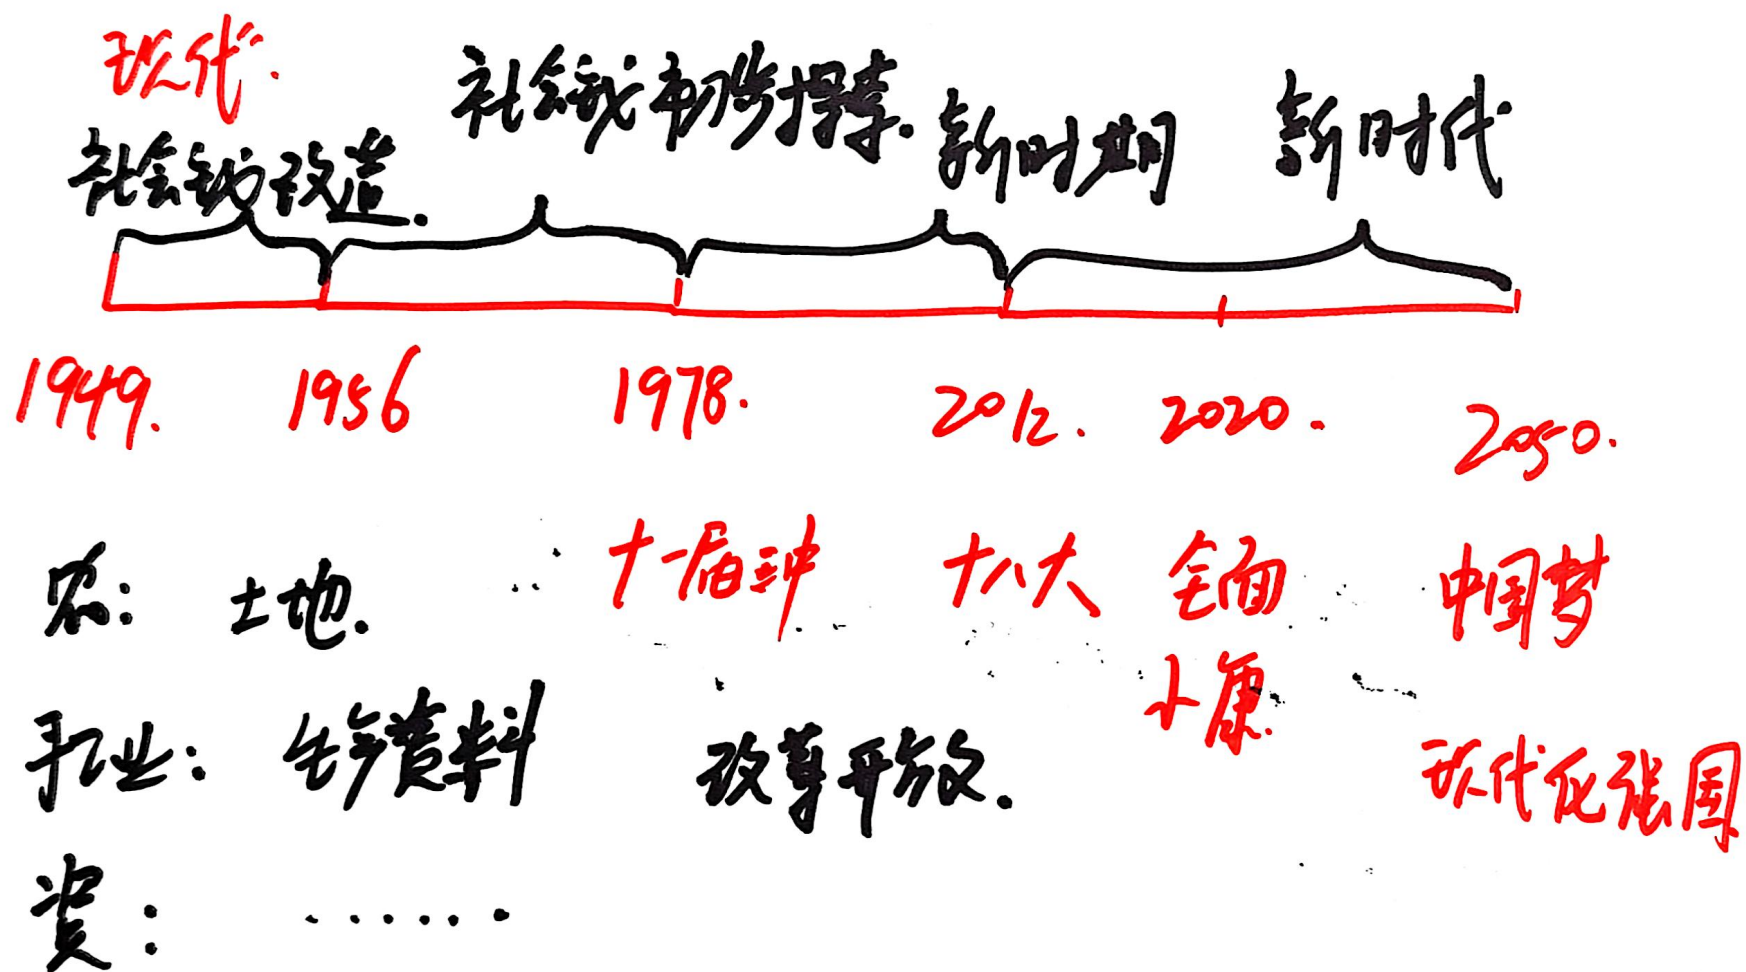 现代.
社会主义改造.
社会主义初步探索.
新时期
新时代
1949. 1956 1978. 2012. 2020. 2050.
农: 土地. 十一届三中 十八大 全面 中国梦
小康.
手工业: 生产资料 改革开放. 现代化强国
资: ......